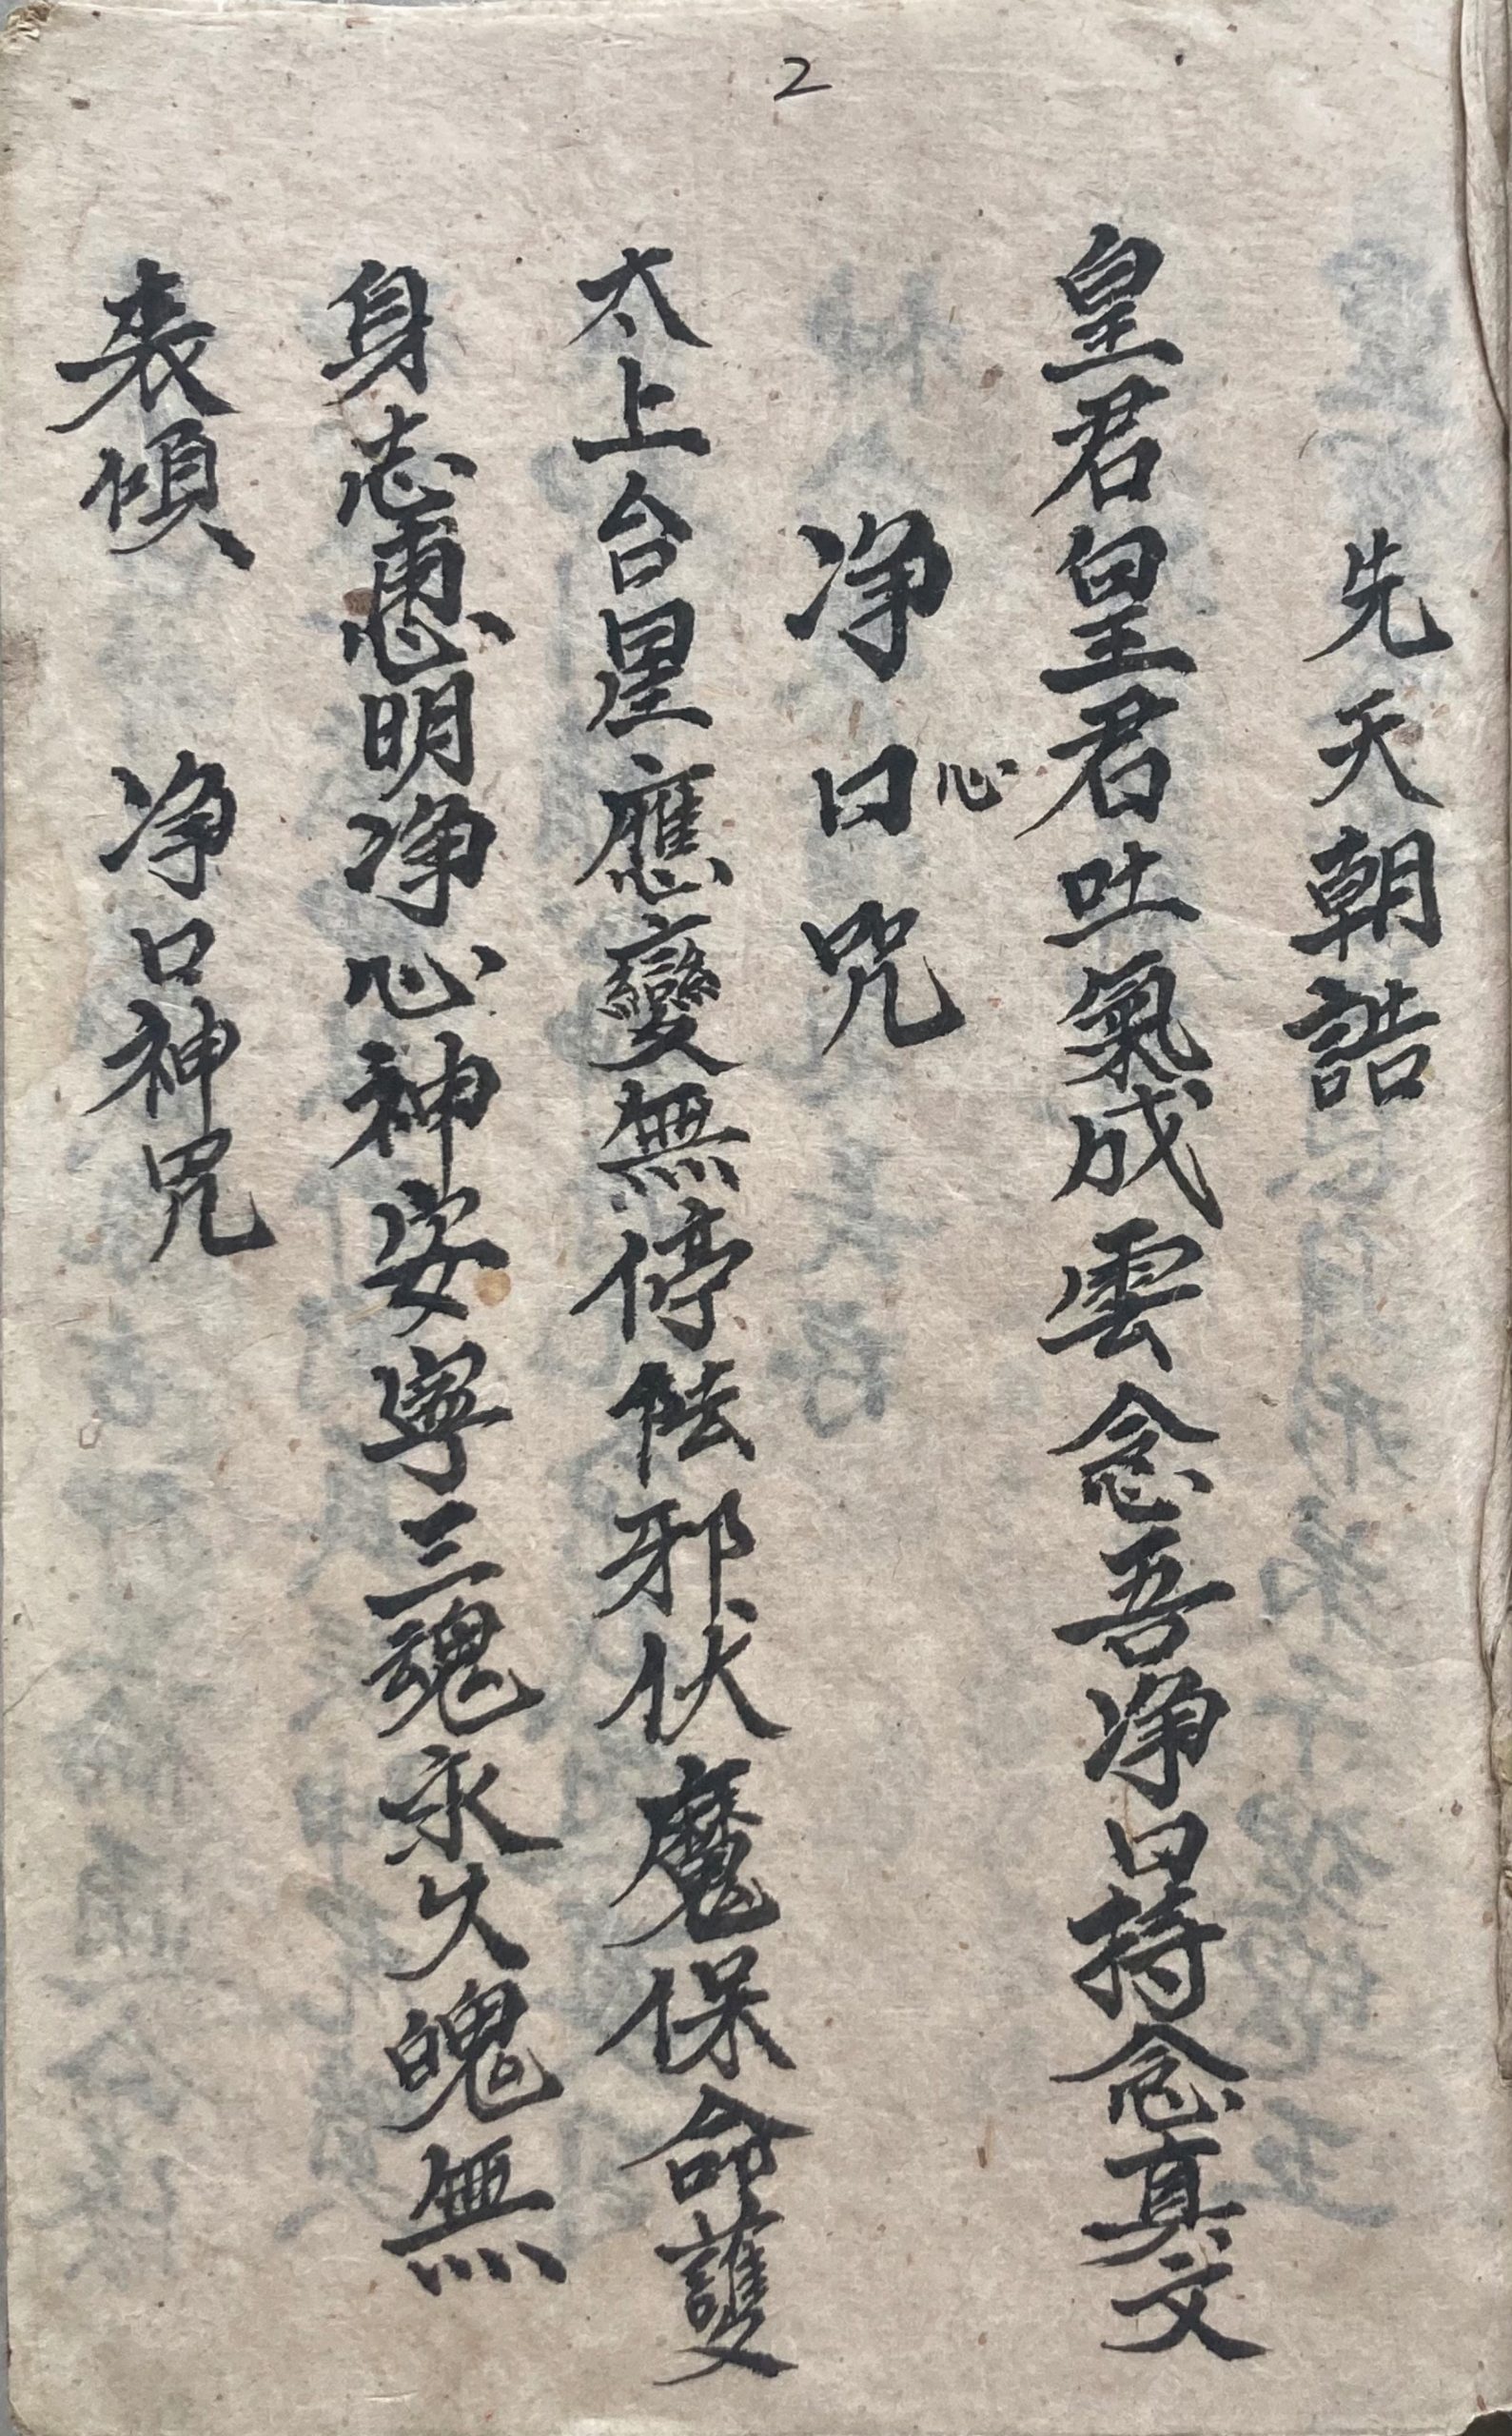 2
先天朝誥
皇君皇君吐氣成雲念吾净口持念真文
净口咒
心
太上台星應變無停怯邪伏魔保命護
身志惠明净心神安寧三魂永久魄無
衷傾 净口神咒